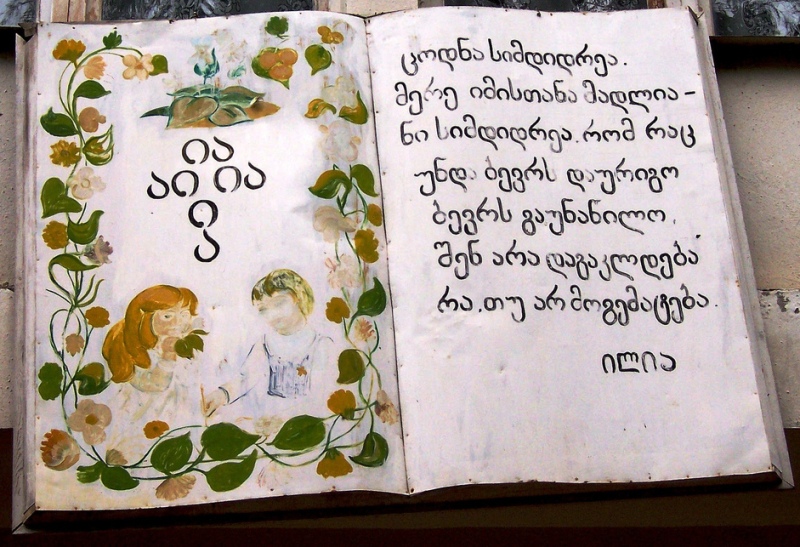 ია
აი ია
ი
ა
ცოდნა სიმდიდრეა.
მერე იმისთანა მადლია –
ნი სიმდიდრეა, რომ რაც
უნდა ბევრს დაურიგო
ბევრს გაუნაწილო,
შენ არა დაგაკლდება
რა, თუ არ მოგემატება.
ილია